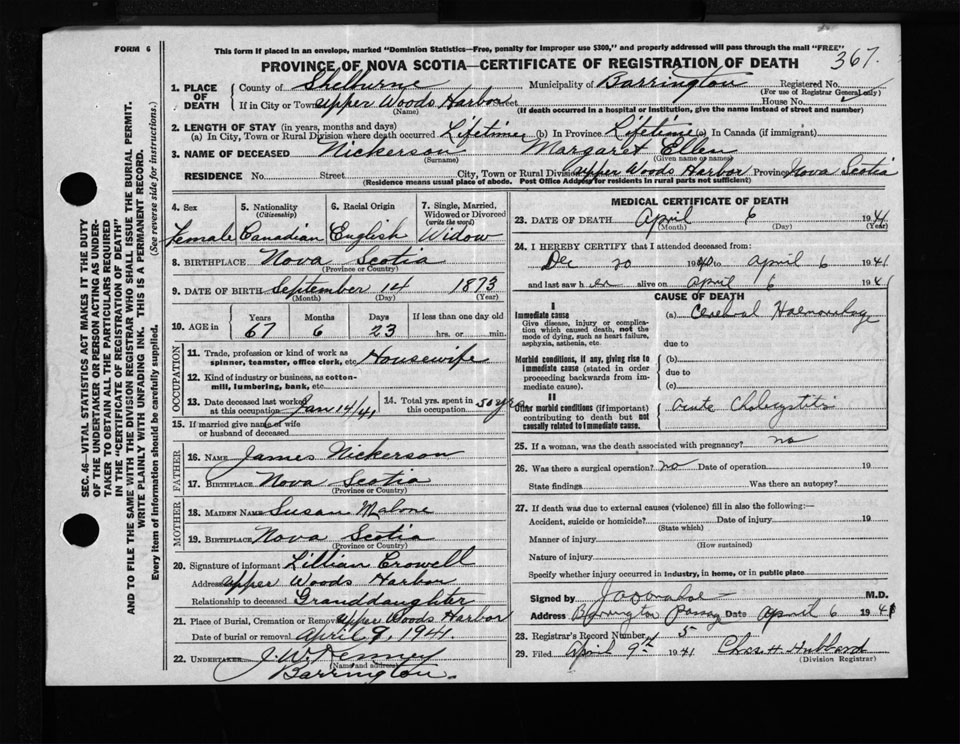 FORM 6
This form if placed in an envelope, marked "Dominion Statistics—Free, penalty for improper use $300," and properly addressed will pass through the mail "FREE"
367.
PROVINCE OF NOVA SCOTIA—CERTIFICATE OF REGISTRATION OF DEATH
SEC. 46—VITAL STATISTICS ACT MAKES IT THE DUTY
OF THE UNDERTAKER OR PERSON ACTING AS UNDER-
TAKER TO OBTAIN ALL THE PARTICULARS REQUIRED
IN THE "CERTIFICATE OF REGISTRATION OF DEATH"
AND TO FILE THE SAME WITH THE DIVISION REGISTRAR WHO SHALL ISSUE THE BURIAL PERMIT.
WRITE PLAINLY WITH UNFADING INK. THIS IS A PERMANENT RECORD.
Every item of information should be carefully supplied. (See reverse side for instructions.)
1. PLACE OF DEATH
County of Shelburne Municipality of Barrington Registered No.
(For use of Registrar General only)
If in City or Town Upper Woods Harbor Street House No.
(Name) (If death occurred in a hospital or institution, give the name instead of street and number)
2. LENGTH OF STAY (in years, months and days)
(a) In City, Town or Rural Division where death occurred Lifetime (b) In Province Lifetime (c) In Canada (if immigrant)
3. NAME OF DECEASED Nickerson Margaret Ellen
(Surname) (Given name or names)
RESIDENCE No. Street City, Town or Rural Division Upper Woods Harbor Province Nova Scotia
(Residence means usual place of abode. Post Office Address for residents in rural parts not sufficient)
4. Sex
Female
5. Nationality
(Citizenship)
Canadian
6. Racial Origin
English
7. Single, Married,
Widowed or Divorced
(write the word)
Widow
8. BIRTHPLACE Nova Scotia
(Province or Country)
9. DATE OF BIRTH September 14 1873
(Month) (Day) (Year)
10. AGE in
Years Months Days If less than one day old
67 6 23 hrs. or min.
OCCUPATION
11. Trade, profession or kind of work as
spinner, teamster, office clerk, etc. Housewife
12. Kind of industry or business, as cotton-
mill, lumbering, bank, etc.
13. Date deceased last worked
at this occupation Jan 14/41
14. Total yrs. spent in
this occupation 50 yrs
15. If married give name of wife
or husband of deceased
FATHER
16. NAME James Nickerson
17. BIRTHPLACE Nova Scotia
(Province or Country)
MOTHER
18. MAIDEN NAME Susan Malone
19. BIRTHPLACE Nova Scotia
(Province or Country)
20. Signature of informant Lillian Crowell
Address Upper Woods Harbor
Relationship to deceased Granddaughter
21. Place of Burial, Cremation or Removal Upper Woods Harbor
Date of burial or removal April 9, 1941.
22. UNDERTAKER J. W. Kenney
(Name and address)
Barrington.
MEDICAL CERTIFICATE OF DEATH
23. DATE OF DEATH April 6 1941
(Month) (Day) (Year)
24. I HEREBY CERTIFY that I attended deceased from:
Dec 20 1940 to April 6 1941
and last saw her alive on April 6 1941
CAUSE OF DEATH
I
Immediate cause
Give disease, injury or complica-
tion which caused death, not the
mode of dying, such as heart failure,
asphyxia, asthenia, etc.
(a) Cerebral Haemorrhage
due to
Morbid conditions, if any, giving rise to
immediate cause (stated in order
proceeding backwards from im-
mediate cause).
(b)
due to
(c)
II
Other morbid conditions (if important)
contributing to death but not
causally related to immediate cause.
Acute Cholecystitis
25. If a woman, was the death associated with pregnancy? no
26. Was there a surgical operation? no Date of operation 19
State findings Was there an autopsy?
27. If death was due to external causes (violence) fill in also the following:—
Accident, suicide or homicide? Date of injury 19
(State which)
Manner of injury
(How sustained)
Nature of injury
Specify whether injury occurred in industry, in home, or in public place
Signed by M.D.
Address Barrington Passage Date April 6 1941
28. Registrar's Record Number 5
29. Filed April 9th 1941 Chas. H. Hubbard
(Division Registrar)